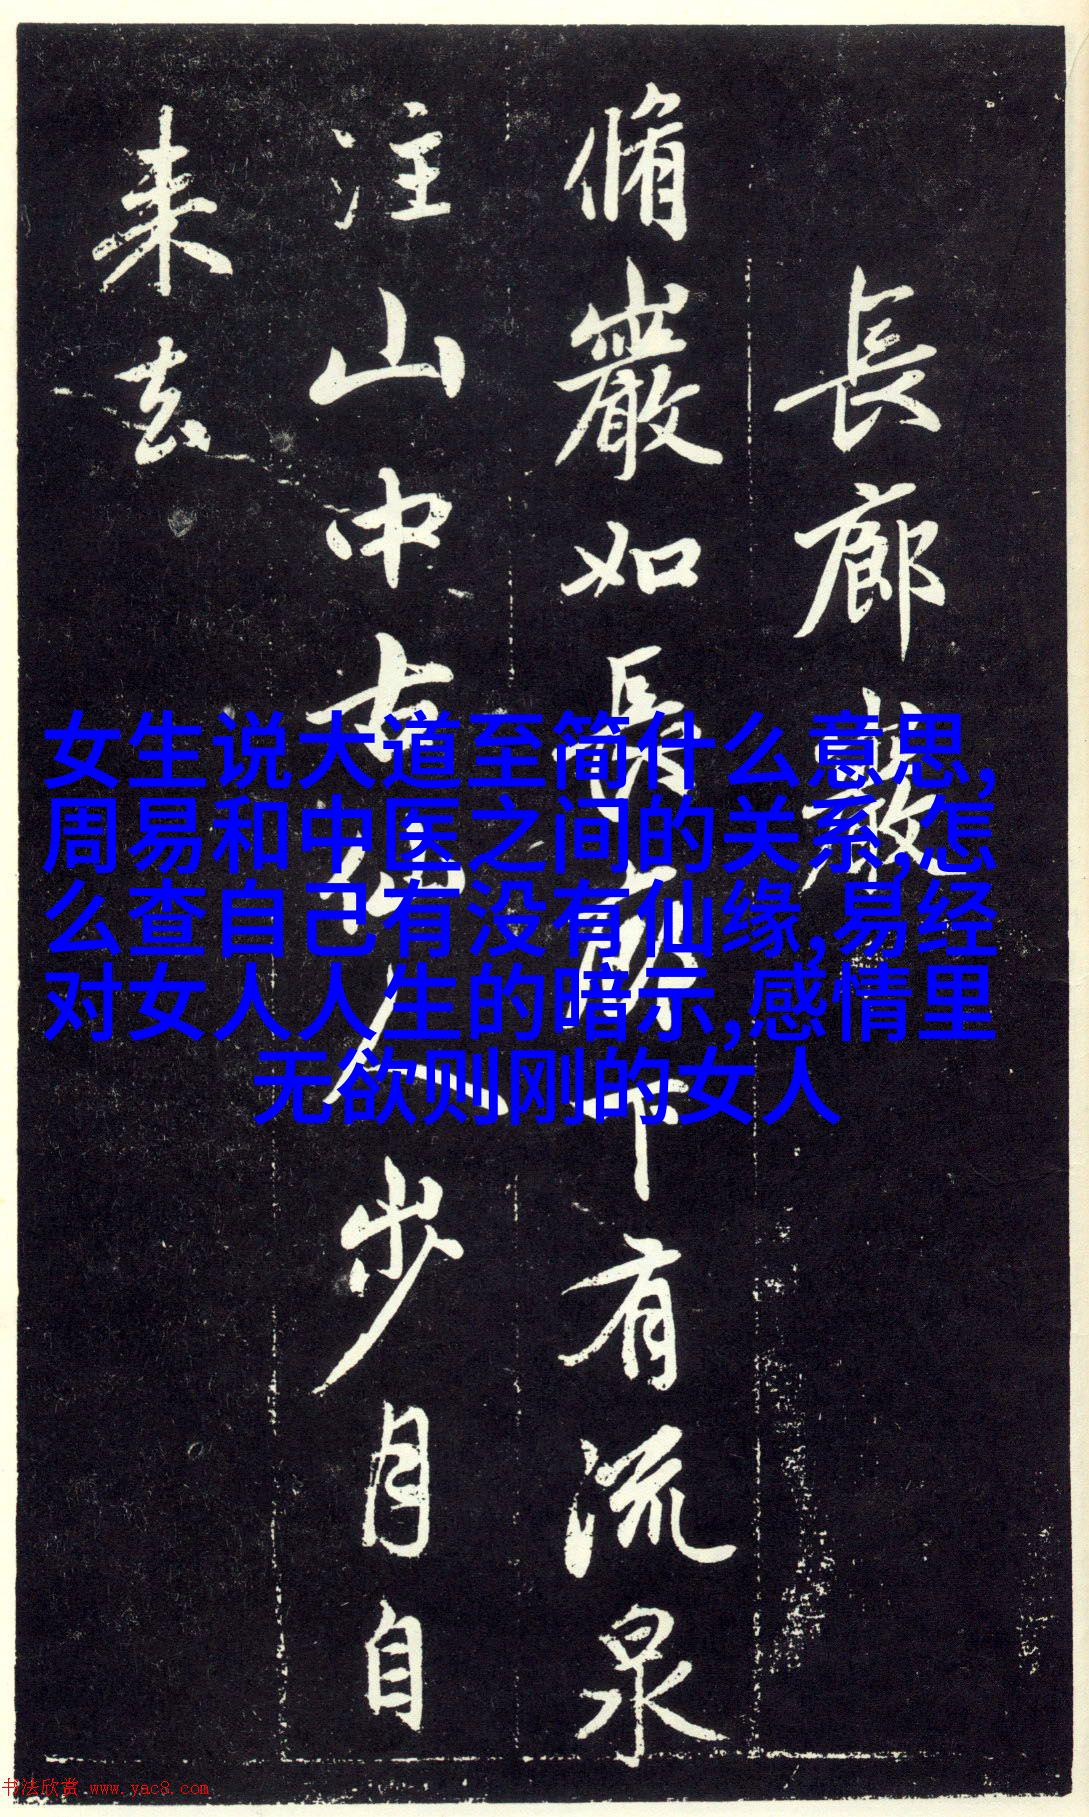 長廊巖
脩巖如長廊下有流泉
注山中古仙人步月自
来去
女生说大道至简什么意思,
周易和中医之间的关系,怎
么查自己有没有仙缘,易经
对女人人生的暗示,感情里
无欲则刚的女人
书法欣赏 www.yac8.com